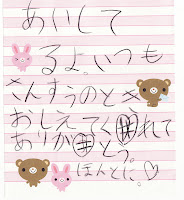 あいして
るよ。いつも
さんすうのとき
おしえてくれて
ありがとう。
ほんとに♡